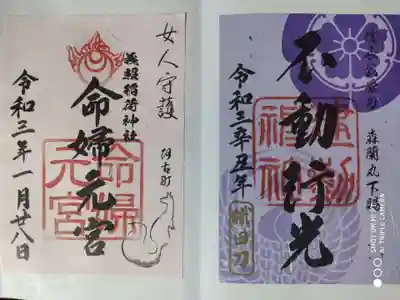 女人守護
阿古町
義照稲荷神社
命婦元宮
命婦元宮
令和三年一月廿八日
森蘭丸下賜
不動行光
建勲神社
令和三辛丑年
SHOT ON MI 9T
AI TRIPLE CAMERA